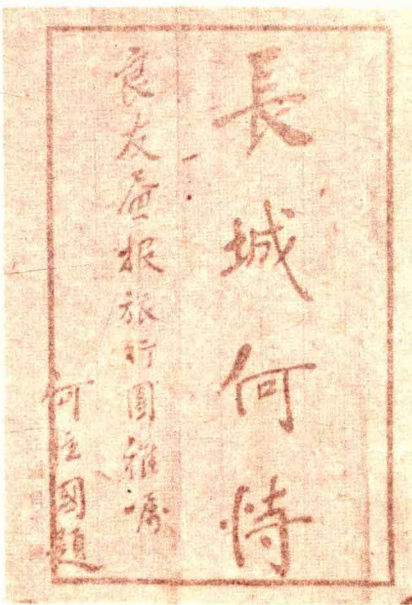 長城何恃
良友畫报旅行團雅嘱
何柱國題